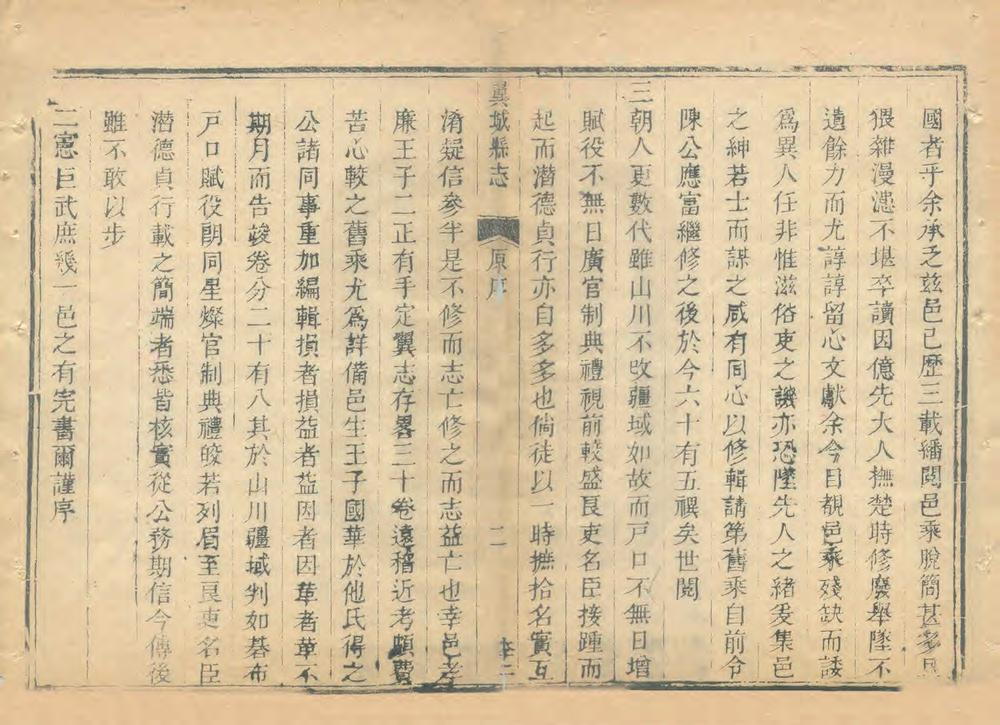 國者乎余承乏茲邑已歷三載繙閱邑乘脫簡甚多且
猥雜漫漶不堪卒讀因億先大人撫楚時修廢舉墜不
遺餘力而尤諄諄留心文獻余今目覩邑乘殘缺而諉
為異人任非惟滋俗吏之譏亦恐墜先人之緒爰集邑
之紳若士而謀之咸有同心以修輯請第舊乘自前令
陳公應富繼修之後於今六十有五禩矣世閱
三朝人更數代雖山川不改疆域如故而戸口不無日增
賦役不無日廣官制典禮視前較盛良吏名臣接踵而
起而潛德貞行亦自多多也倘徒以一時摭拾名實互
翼城縣志
原序
二
李二
淆疑信參半是不修而志亡修之而志益亡也幸邑孝
廉王子二正有手定翼志存畧三十卷遠稽近考頗費
苦心較之舊乘尤為詳備邑生王子國華於他氏得之
公諸同事重加編輯損者損益者益因者因革者革不
期月而告竣卷分二十有八其於山川疆域判如碁布
戸口賦役朗同星燦官制典禮皎若列眉至良吏名臣
潛德貞行載之簡端者悉皆核實從公務期信今傳後
雖不敢以步
二憲巨武庶幾一邑之有完書爾謹序